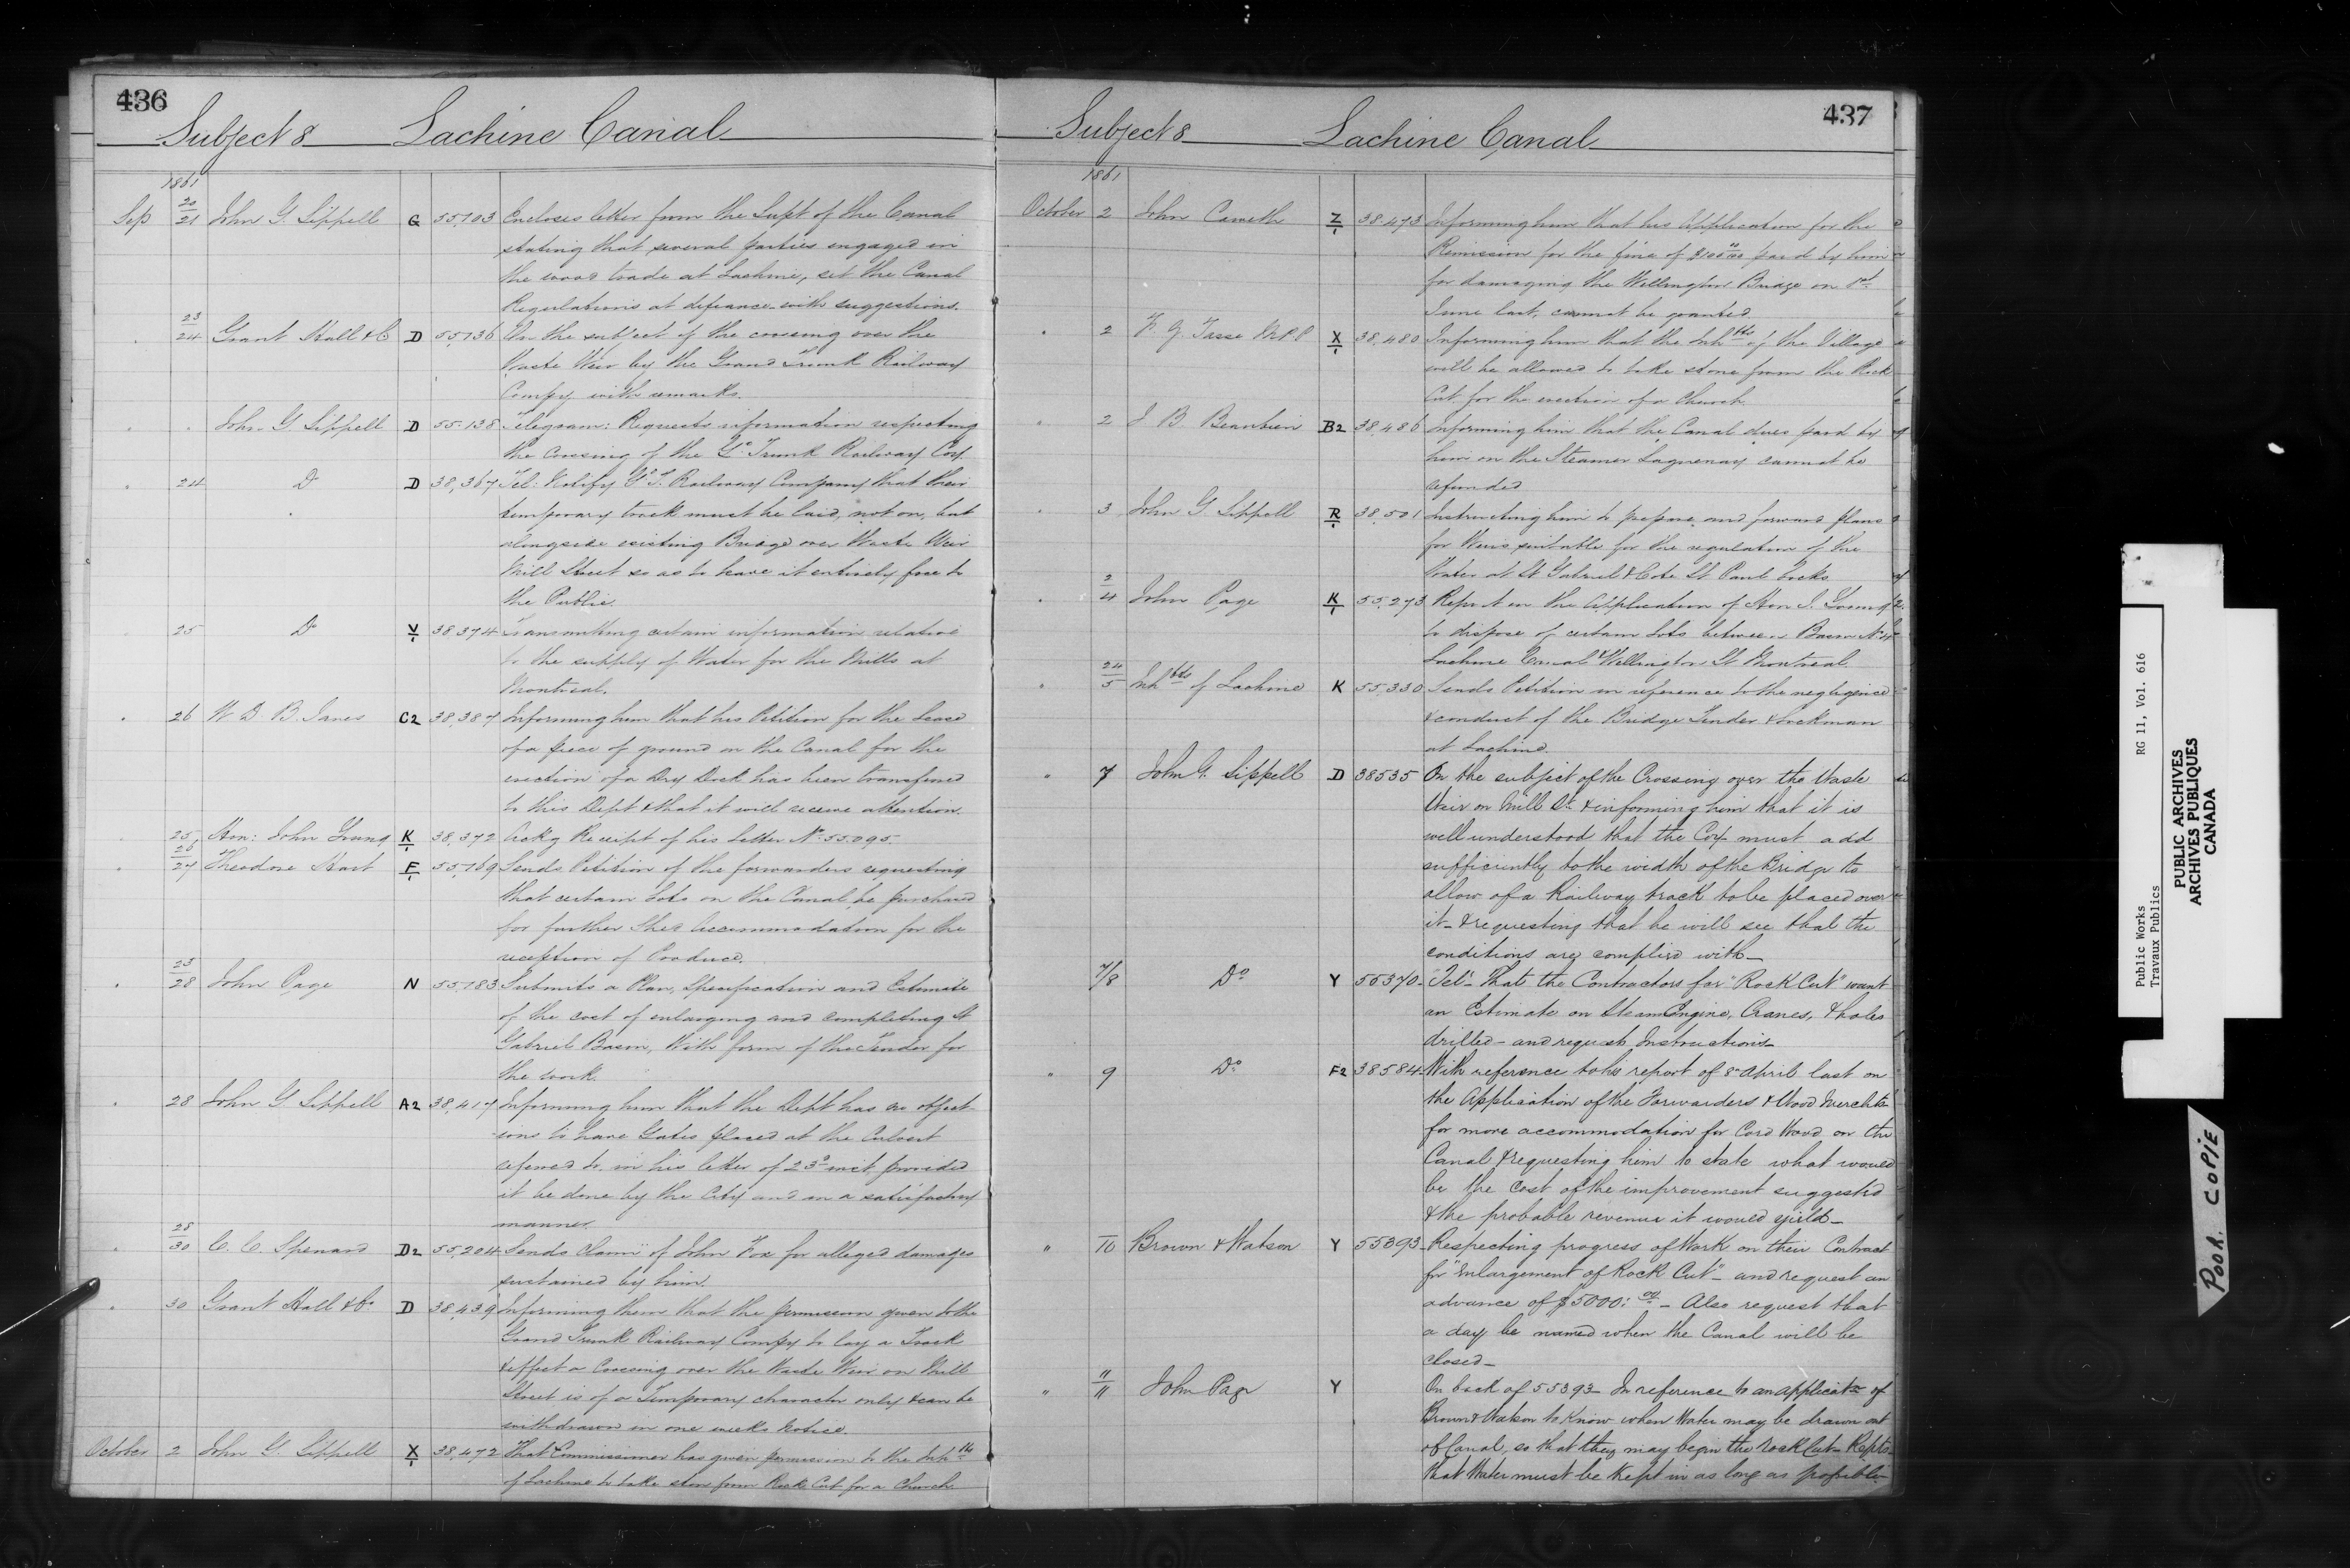 436
Subject 8 Lachine Canal
1861
Sep 20/21 John G. Sippell G 55,103 Encloses letter from the Supt of the Canal
stating that several parties engaged in
the wood trade at Lachine, set the Canal
Regulations at defiance with suggestions.
" 23/24 Grant Hall & Co D 55,136 On the subject of the crossing over the
Waste Weir by the Grand Trunk Railway
Compy with remarks.
" " John G. Sippell D 55.138 Telegram: Requests information respecting
the crossing of the Gd Trunk Railway Coy.
" 24 Do D 38,367 Tel: Notify G. T. Railway Company that their
temporary track must be laid, not on, but
alongside existing Bridge over Waste Weir
Mill Street so as to leave it entirely free to
the Public.
" 25 Do V/1 38,374 Transmitting certain information relative
to the supply of Water for the Mills at
Montreal.
" 26 W. D. B. Janes C2 38,387 Informing him that his Petition for the Lease
of a piece of ground on the Canal for the
erection of a Dry Dock has been transferred
to this Dept & that it will receive attention.
" 25 Hon: John Young K/1 38,372 Ackg Receipt of his letter No 55.095.
" 26/27 Theodore Hart F/1 55,169 Sends Petition of the forwarders requesting
that certain Lots on the Canal be purchased
for further Shed accommodation for the
reception of Produce.
" 25/28 John Page N 55,183 Submits a Plan, Specification and Estimate
of the cost of enlarging and completing St
Gabriel Basin, With form of the Tender for
the work.
" 28 John G Sippell A2 38,417 Informing him that the Dept has no object-
-ions to have Gates placed at the Culvert
referred to in his letter of 23d inst, provided
it be done by the City and in a satisfactory
manner.
" 28/30 C. C. Spenard D2 55,204 Sends claim of John Fox for alleged damages
sustained by him.
" 30 Grant Hall & Co D 38,439 Informing them that the permission given to the
Grand Trunk Railway Compy to lay a Track
& effect a Crossing over the Waste Weir on Mill
Street is of a Temporary character only & can be
withdrawn in one weeks Notice.
October 2 John G. Sippell X/1 38,472 That Commissioner has given permission to the Inhts
of Lachine to take stone from Rock Cut for a Church.
437
Subject 8 Lachine Canal
1861
October 2 John Z/1 38.473 Informing him that his Application for the
Remission for the fine of $100.00 paid by him
for damaging the Wellington Bridge on 1st
June last, cannot be granted.
" 2 F. Z. Tasse M.P.P X/1 38,480 Informing him that the Inhbts of the Village
will be allowed to take stone from the Rock
Cut for the erection of a Church.
" 2 J B Beaubien B2 38,486 Informing him that the Canal dues paid by
him on the Steamer Saguenay cannot be
refunded
" 3 John G. Sippell R/1 38,501 Instructing him to prepare and forward plans
for Weirs suitable for the regulation of the
Water at St Gabriel & Cote St Paul Locks
" 2/4 John Page K/1 55,273 Report on the Application of Hon J. Young
to dispose of certain Lots between Basin No 4
Lachine Canal & Wellington St Montreal.
" 24/5 Inhbts of Lachine K 55,330 Sends Petition in reference to the negligence
& conduct of the Bridge Tender & Lockman
at Lachine.
" 7 John G. Sippell D 38535 On the subject of the Crossing over the Waste
Weir on Mill St & informing him that it is
well understood that the Coy must add
sufficiently to the width of the Bridge to
allow of a Railway track to be placed over
it - & requesting that he will see that the
conditions are complied with -
7/8 Do Y 55370 - Tel: That the Contractors for "Rock Cut" want
an Estimate on Steam Engine, Cranes, & holes
drilled - and request Instructions -
" 9 Do F2 38584 With reference to his report of 8 April last on
the Application of the Forwarders & Wood Merchts
for more accommodation for Cord Wood on the
Canal & requesting him to state what would
be the cost of the improvement suggested
& the probable revenue it would yield -
" /10 Brown & Watson Y 55393 - Respecting progress of Work on their Contract
for "Enlargement of Rock Cut" - and request an
advance of $5000:00 - Also request that
a day be named when the Canal will be
closed -
" 11/11 John Page Y On back of 55393 - In reference to an applicatn of
Brown & Watson to know when Water may be drawn out
of Canal, so that they may begin the Rock Cut - Repts
that Water must be kept in as long as possible -
Public Works RG 11, Vol. 616
Travaux Publics
PUBLIC ARCHIVES
ARCHIVES PUBLIQUES
CANADA
POOR COPIE